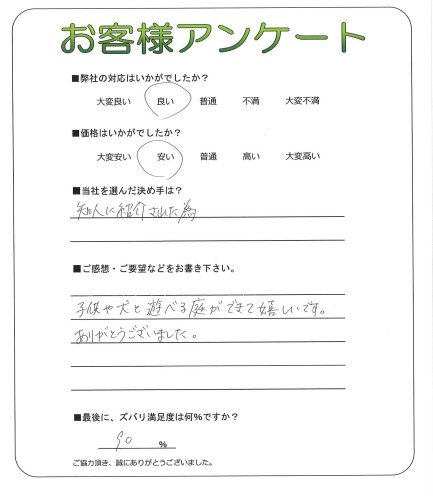 お客様アンケート
■弊社の対応はいかがでしたか？
大変良い 良い 普通 不満 大変不満
■価格はいかがでしたか？
大変安い 安い 普通 高い 大変高い
■当社を選んだ決め手は？
知人に紹介された為
■ご感想・ご要望などをお書き下さい。
子供や犬と遊べる庭ができて嬉しいです。
ありがとうございました。
■最後に、ズバリ満足度は何％ですか？
90 %
ご協力頂き、誠にありがとうございました。